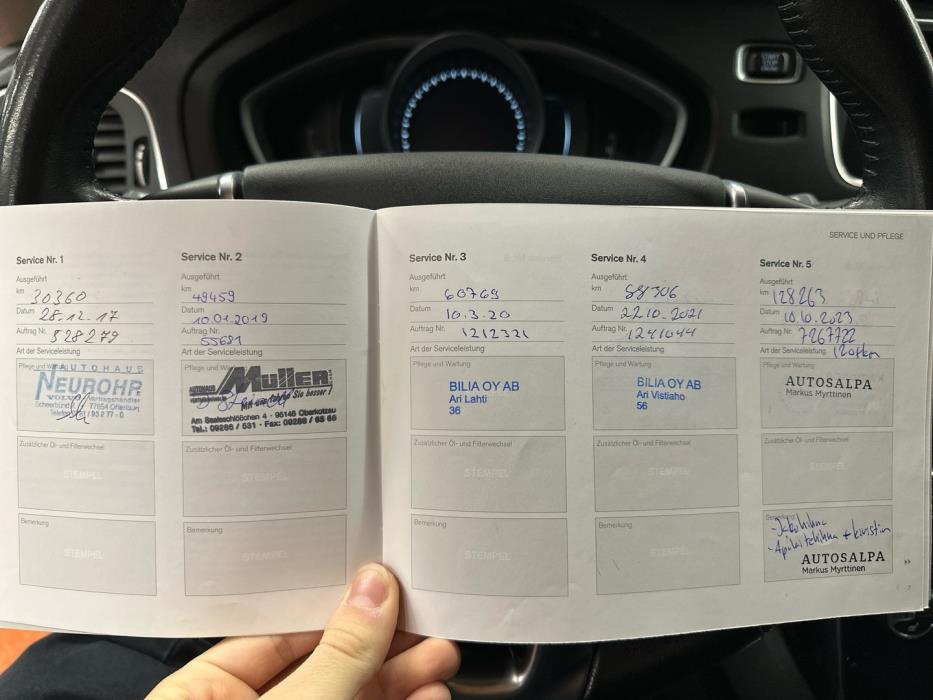 START
STOP
ENGINE
SERVICE UND PFLEGE
Service Nr. 1
Ausgeführt
km 30360
Datum 28-12-17
Auftrag Nr. 528279
Art der Serviceleistung
Pflege und Wartung
AUTOHAUS
NEUROHR
VOLVO Vertragshändler
77654 Offenburg
Zusätzlicher Öl- und Filterwechsel
STEMPEL
Bemerkung
STEMPEL
Service Nr. 2
Ausgeführt
km 49459
Datum 10.01.2019
Auftrag Nr. 55681
Art der Serviceleistung
Pflege und
AUTOHAUS Müller
Mit uns fahren Sie besser!
Am Saaleschlößchen 4 - 95145 Oberkotzau
Tel.: 09286 / 531 - Fax: 09286 / 63 66
Zusätzlicher Öl- und Filterwechsel
STEMPEL
Bemerkung
STEMPEL
Service Nr. 3
Ausgeführt
km 60769
Datum 10.3.20
Auftrag Nr. 1212321
Art der Serviceleistung
Pflege und Wartung
BILIA OY AB
Ari Lahti
36
Zusätzlicher Öl- und Filterwechsel
STEMPEL
Bemerkung
STEMPEL
Service Nr. 4
Ausgeführt
km 88306
Datum 22.10.2021
Auftrag Nr. 1241044
Art der Serviceleistung
Pflege und Wartung
BILIA OY AB
Ari Vistiaho
56
Zusätzlicher Öl- und Filterwechsel
STEMPEL
Bemerkung
STEMPEL
Service Nr. 5
Ausgeführt
km 128263
Datum 10.10.2023
Auftrag Nr. 7267722
Art der Serviceleistung 120tkm
Pflege und Wartung
AUTOSALPA
Markus Myrttinen
Zusätzlicher Öl- und Filterwechsel
STEMPEL
Bemerkung
- Jakohihna
- Apulaitehihna + kiristin
AUTOSALPA
Markus Myrttinen
>>
7